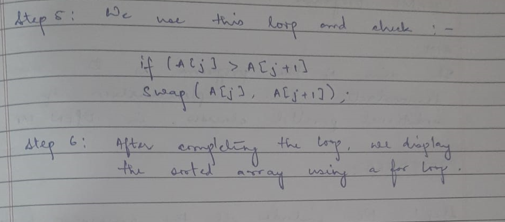 Step 5: We use this loop and check :-
if (A[j] > A[j+1]
Swap (A[j], A[j+1]);
Step 6: After completing the loop, we display
the sorted array using a for loop.